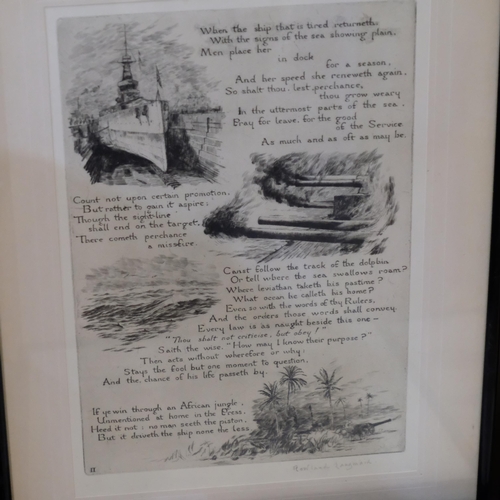 When the ship that is tired returneth,
With the signs of the sea showing plain,
Men place her
in dock
for a season,
And her speed she reneweth again.
So shalt thou, lest perchance,
thou grow weary
In the uttermost parts of the sea,
Pray for leave, for the good
of the Service
As much and as oft as may be.
Count not upon certain promotion,
But rather to gain it aspire;
Though the sight-line
shall end on the target,
There cometh perchance
a miss-fire.
Canst follow the track of the dolphin
Or tell where the sea swallows roam?
Where leviathan taketh his pastime?
What ocean he calleth his home?
Even so with the words of thy Rulers,
And the orders those words shall convey.
Every law is as naught beside this one -
"Thou shalt not criticise, but obey!"
Saith the wise "How may I know their purpose?"
Then acts without wherefore or why:
Stays the fool but one moment to question,
And the chance of his life passeth by.
If ye win through an African jungle,
Unmentioned at home in the Press,
Heed it not: no man seeth the piston,
But it driveth the ship none the less
II